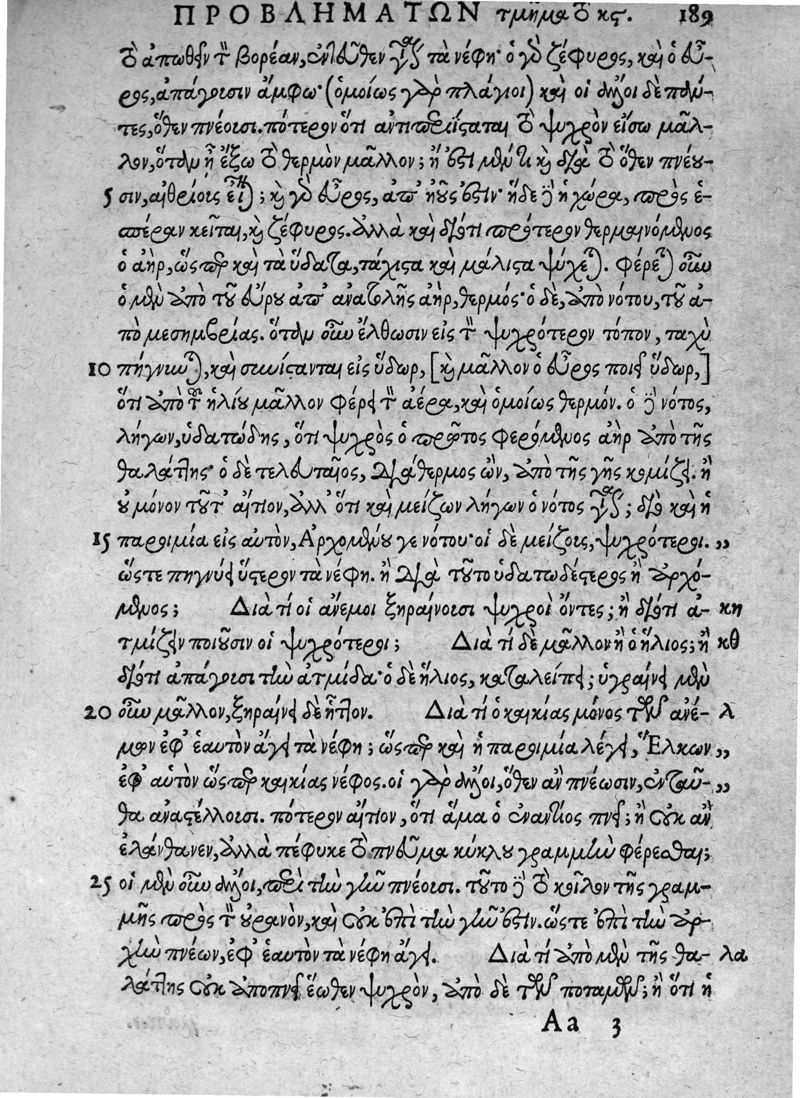 ΠΡΟΒΛΗΜΑΤΩΝ τμῆμα τὸ κϛ. 189
τὸ ἀπωθεῖν τὸν βορέαν, ἐντεῦθεν γὰρ τὰ νέφη· ὁ γὸ ζέφυρος, καὶ ὁ εὖ-
ρος, ἀπάγουσιν ἄμφω· (ὁμοίως γὰρ πλάγιοι) καὶ οἱ ἄλλοι δὲ πάν-
τες, ὅθεν πνέουσι. πότερον ὅτι ἀντιπεριίσταται τὸ ψυχρὸν εἴσω μᾶλ-
λον, ὅταν ᾖ ἔξω τὸ θερμὸν μᾶλλον; ἢ ἔστι μέν τι καὶ διὰ τὸ ὅθεν πνέου-
5 σιν, αἰθρίοις εἶναι; καὶ γὸ εὖρος, ἀπ' ἠοῦς ἐστίν· ἥδε δὲ ἡ χώρα, πρὸς ἑ-
σπέραν κεῖται, καὶ ζέφυρος. ἀλλὰ καὶ διότι πρότερον θερμαινόμενος
ὁ ἀὴρ, ὥσπερ καὶ τὰ ὕδατα, τάχιστα καὶ μάλιστα ψύχεται. φέρεται οὖν
ὁ μὲν ἀπὸ τοῦ εὔρου ἀπ' ἀνατολῆς ἀὴρ, θερμός· ὁ δὲ, ἀπὸ νότου, τοῦ ἀ-
πὸ μεσημβρίας. ὅταν οὖν ἔλθωσιν εἰς τὸν ψυχρότερον τόπον, ταχὺ
10 πήγνυνται, καὶ συνίστανται εἰς ὕδωρ, [καὶ μᾶλλον ὁ εὖρος ποιεῖ ὕδωρ,]
ὅτι ἀπὸ τοῦ ἡλίου μᾶλλον φέρει τὸν ἀέρα, καὶ ὁμοίως θερμόν. ὁ δὲ νότος,
λήγων, ὑδατώδης, ὅτι ψυχρὸς ὁ πρῶτος φερόμενος ἀὴρ ἀπὸ τῆς
θαλάττης· ὁ δὲ τελευταῖος, διάθερμος ὢν, ἀπὸ τῆς γῆς κομίζει. ἢ
οὐ μόνον τοῦτ' αἴτιον, ἀλλ' ὅτι καὶ μείζων λήγων ὁ νότος γίνεται; διὸ καὶ ἡ
15 παροιμία εἰς αὐτὸν, Ἀρχομένου γε νότου· οἱ δὲ μείζους, ψυχρότεροι. „
ὥστε πηγνύει ὕστερον τὰ νέφη. ἢ διὰ τοῦτο ὑδατωδέστερος ἢ ἀρχό-
μενος; Διὰ τί οἱ ἄνεμοι ξηραίνουσι ψυχροὶ ὄντες; ἢ διότι ἀ- κη
τμίζειν ποιοῦσιν οἱ ψυχρότεροι; Διὰ τί δὲ μᾶλλον ἢ ὁ ἥλιος; ἢ κθ
διότι ἀπάγουσι τὴν ἀτμίδα· ὁ δὲ ἥλιος, καταλείπει; ὑγραίνει μὲν
20 οὖν μᾶλλον, ξηραίνει δὲ ἧττον. Διὰ τί ὁ καικίας μόνος τῶν ἀνέ- λ
μων ἐφ' ἑαυτὸν ἄγει τὰ νέφη; ὥσπερ καὶ ἡ παροιμία λέγει, Ἕλκων „
ἐφ' αὑτὸν ὥσπερ καικίας νέφος. οἱ γὰρ ἄλλοι, ὅθεν ἂν πνέωσιν, ἐνταῦ- „
θα ἀναστέλλουσι. πότερον αἴτιον, ὅτι ἅμα ὁ ἐναντίος πνεῖ; ἢ οὐκ ἂν
ἐλάνθανεν, ἀλλὰ πέφυκε τὸ πνεῦμα κύκλου γραμμὴν φέρεσθαι;
25 οἱ μὲν οὖν ἄλλοι, περὶ τὴν γῆν πνέουσι. τοῦτο δὲ τὸ κοῖλον τῆς γραμ-
μῆς πρὸς τὸν οὐρανὸν, καὶ οὐκ ἐπὶ τὴν γῆν ἐστίν. ὥστε ἐπὶ τὴν ἀρ-
χὴν πνέων, ἐφ' ἑαυτὸν τὰ νέφη ἄγει. Διὰ τί ἀπὸ μὲν τῆς θα- λα
λάττης οὐκ ἀποπνεῖ ἕωθεν ψυχρὸν, ἀπὸ δὲ τῶν ποταμῶν; ἢ ὅτι ἡ
Aa 3